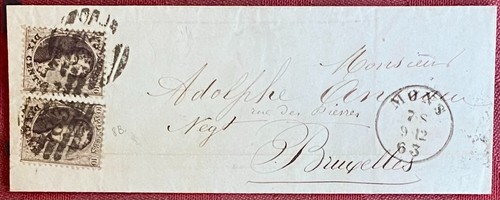 DIX CENTIMES
DIX CENTIMES
Monsieur
Adolphe
rue des Pierres
Negt
Bruxelles
MONS
7 S
9-12
63